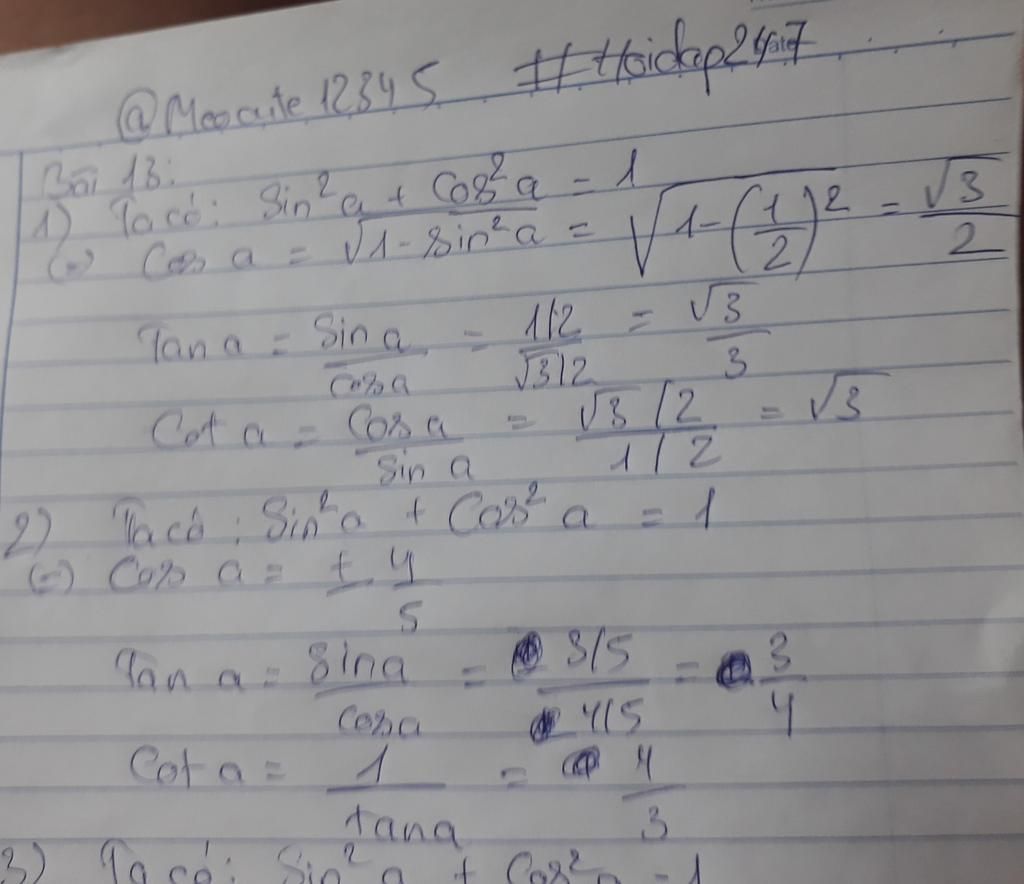 @Meocute12345 #Hoidap247
Bài 13:
1) Ta có: Sin²a + Cos²a = 1
(=) Cos a = √(1 - sin²a) = √(1 - (1/2)²) = √3/2
Tan a = Sin a/cosa = (1/2)/(√3/2) = √3/3
Cot a = Cos a/sin a = (√3/2)/(1/2) = √3
2) Ta có: Sin²a + Cos² a = 1
(=) Cos a = ± 4/5
Tan a = sina/cosa = (3/5)/(4/5) = 3/4
Cot a = 1/tana = 4/3
3) Ta có: Sin²a + Cos²a = 1